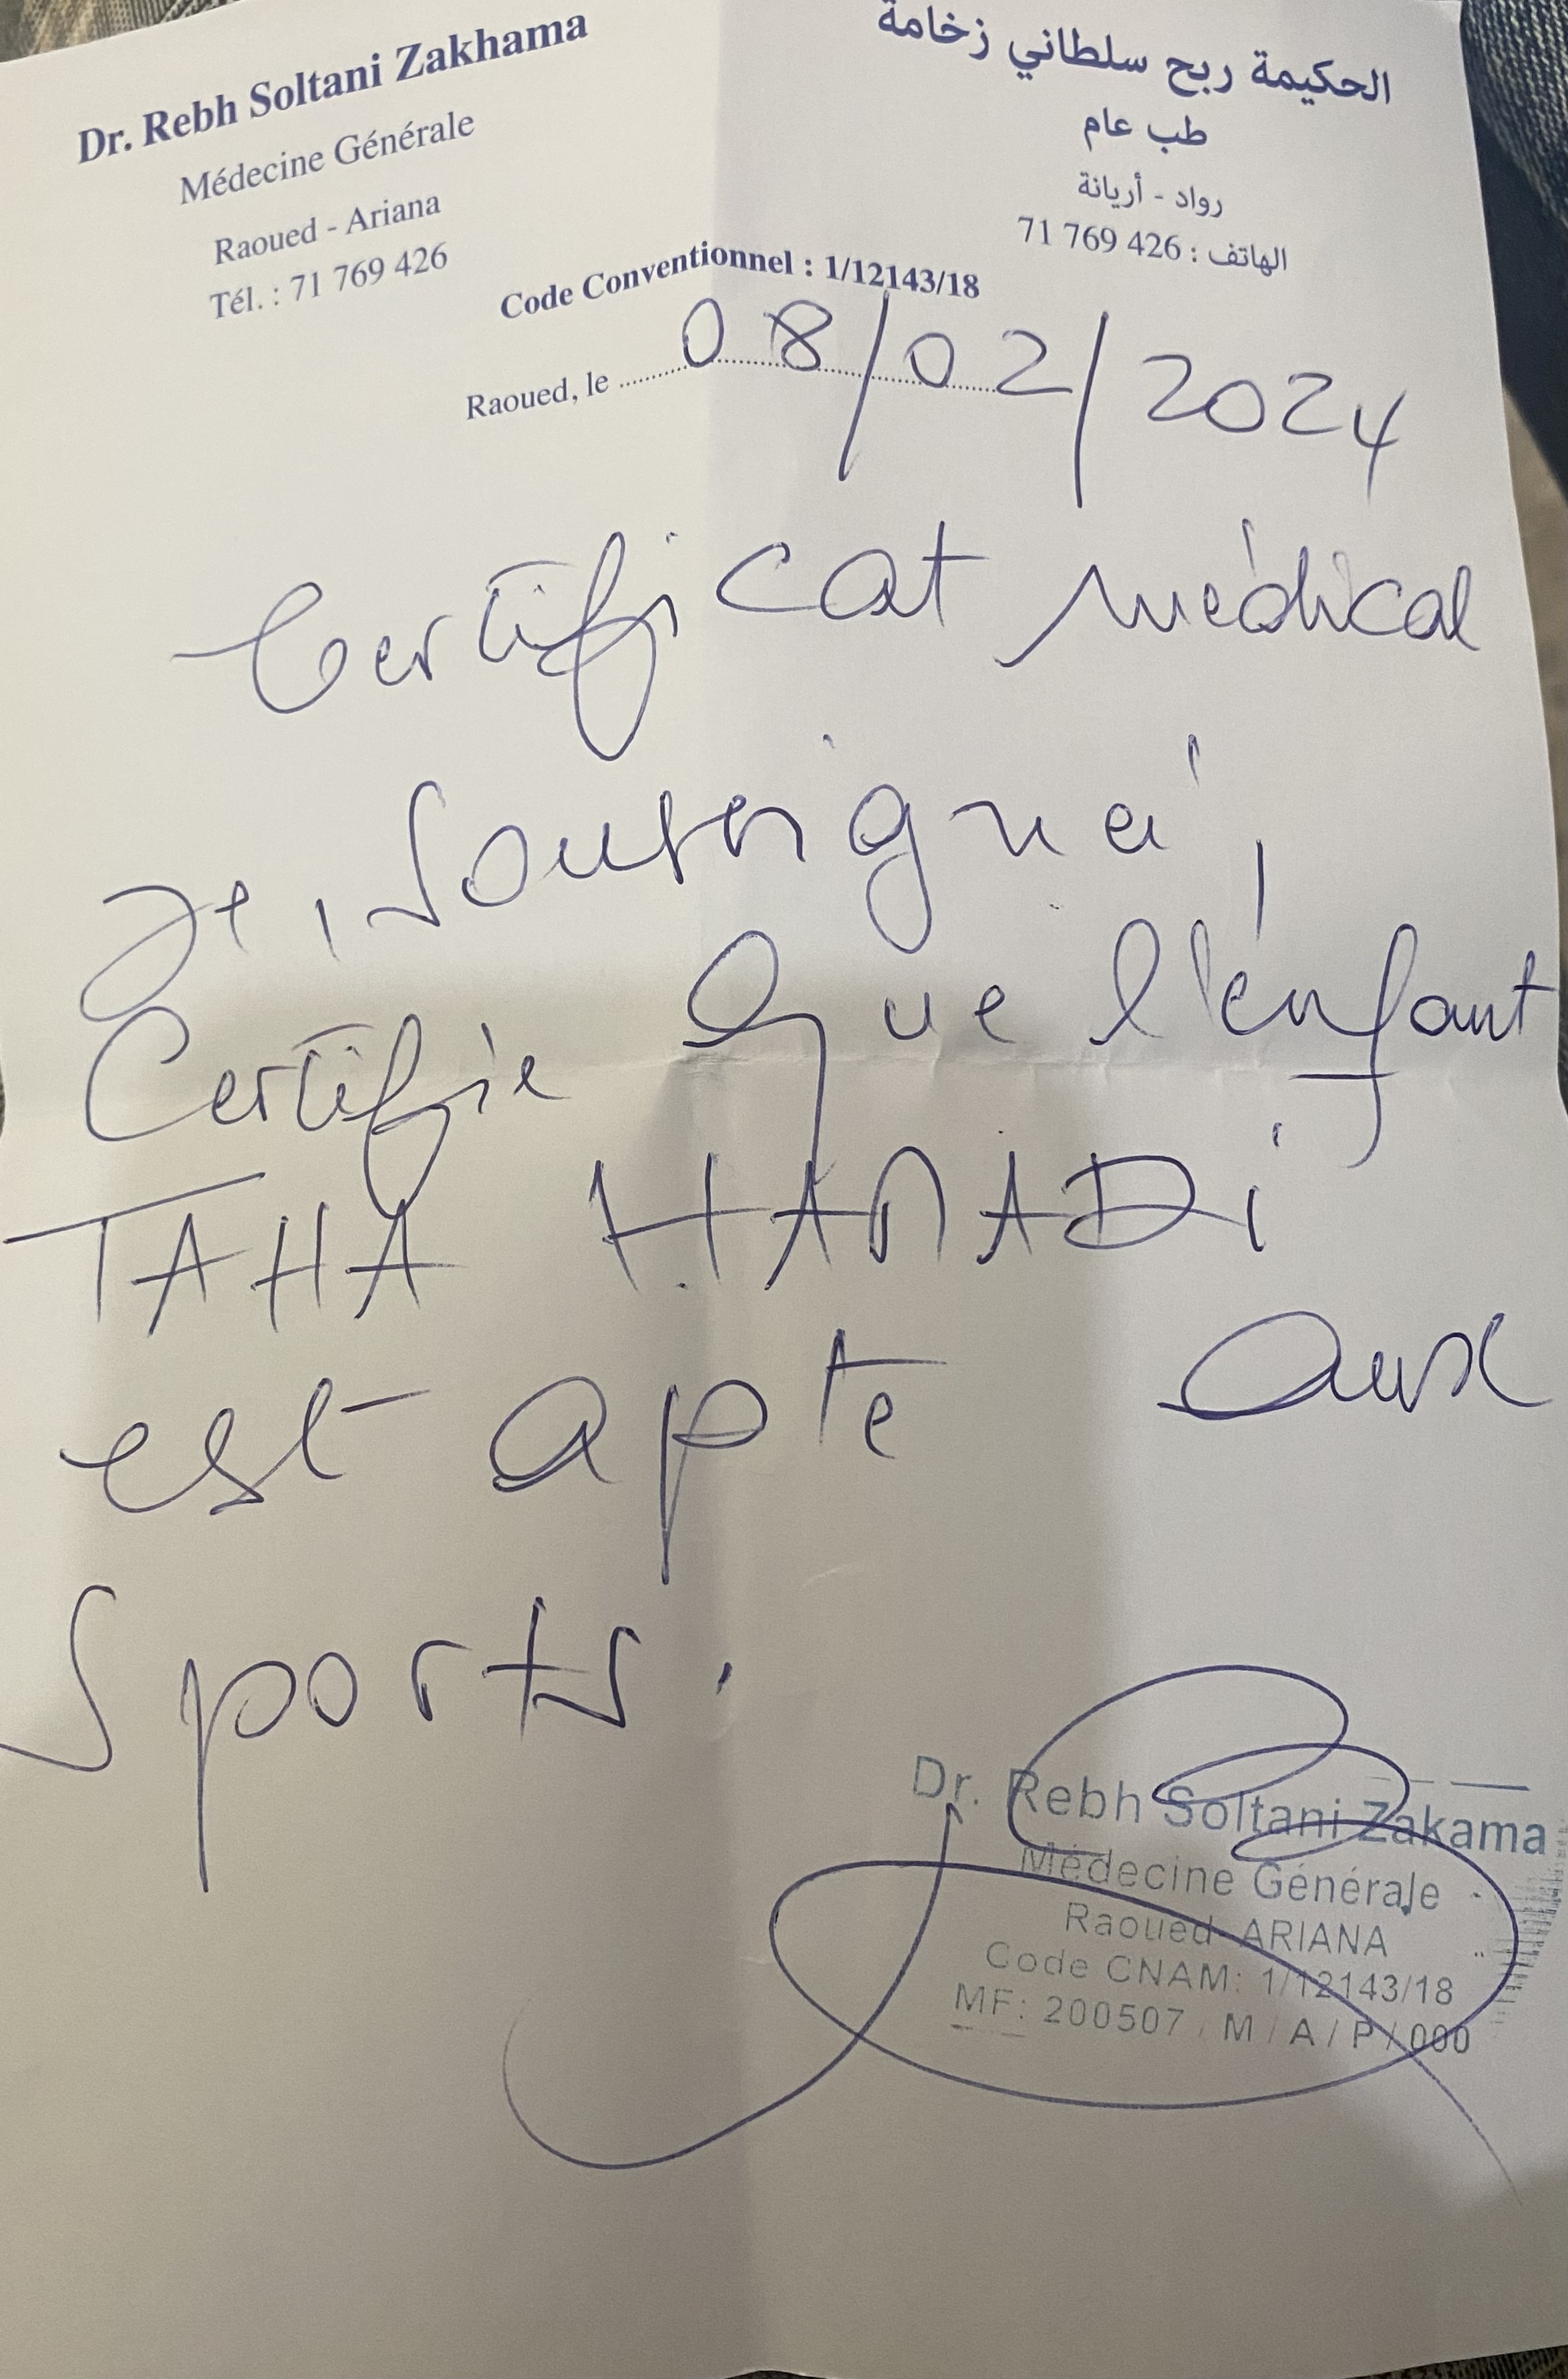 Dr. Rebh Soltani Zakhama
Médecine Générale
Raoued - Ariana
Tél. : 71 769 426
الحكيمة ربح سلطاني زخامة
طب عام
رواد - أريانة
الهاتف : 426 769 71
Code Conventionnel : 1/12143/18
Raoued, le 08/02/2024
Certificat médical
Je, soussigné,
Certifie que l'enfant
TAHA HAMADi
est apte aux
sports.
Dr. Rebh Soltani Zakama
Médecine Générale
Raoued- ARIANA
Code CNAM: 1/12143/18
MF: 200507 / M / A / P / 000